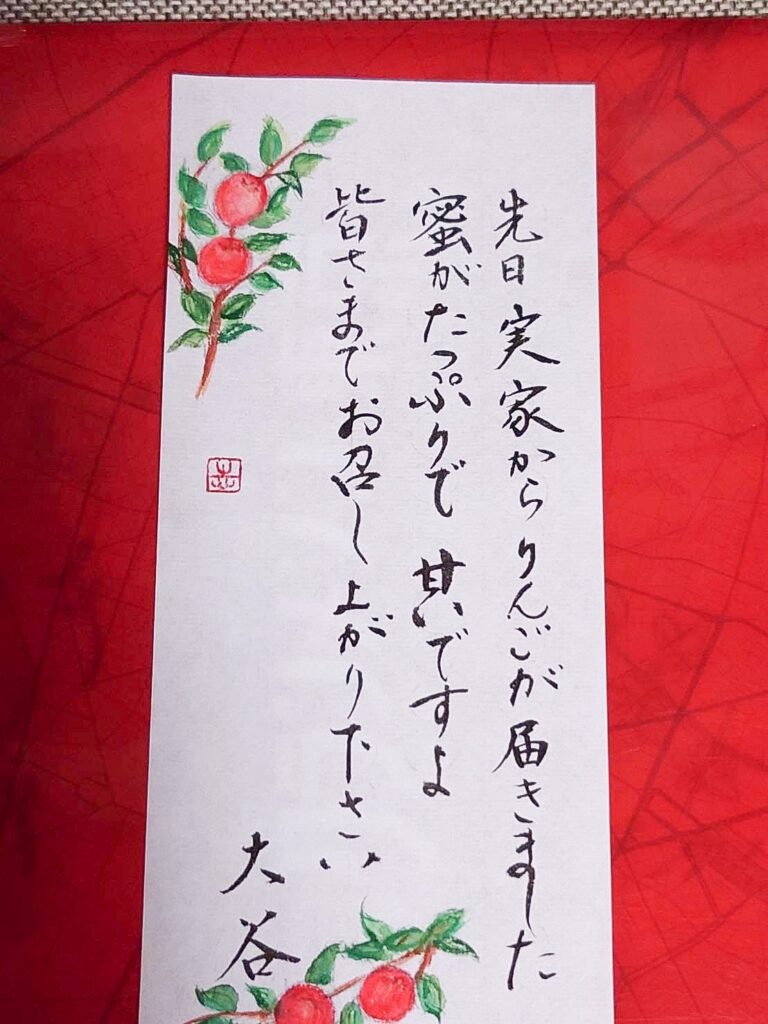 先日実家からりんごが届きました
蜜がたっぷりで 甘いですよ
皆さまでお召し上がり下さい
大谷